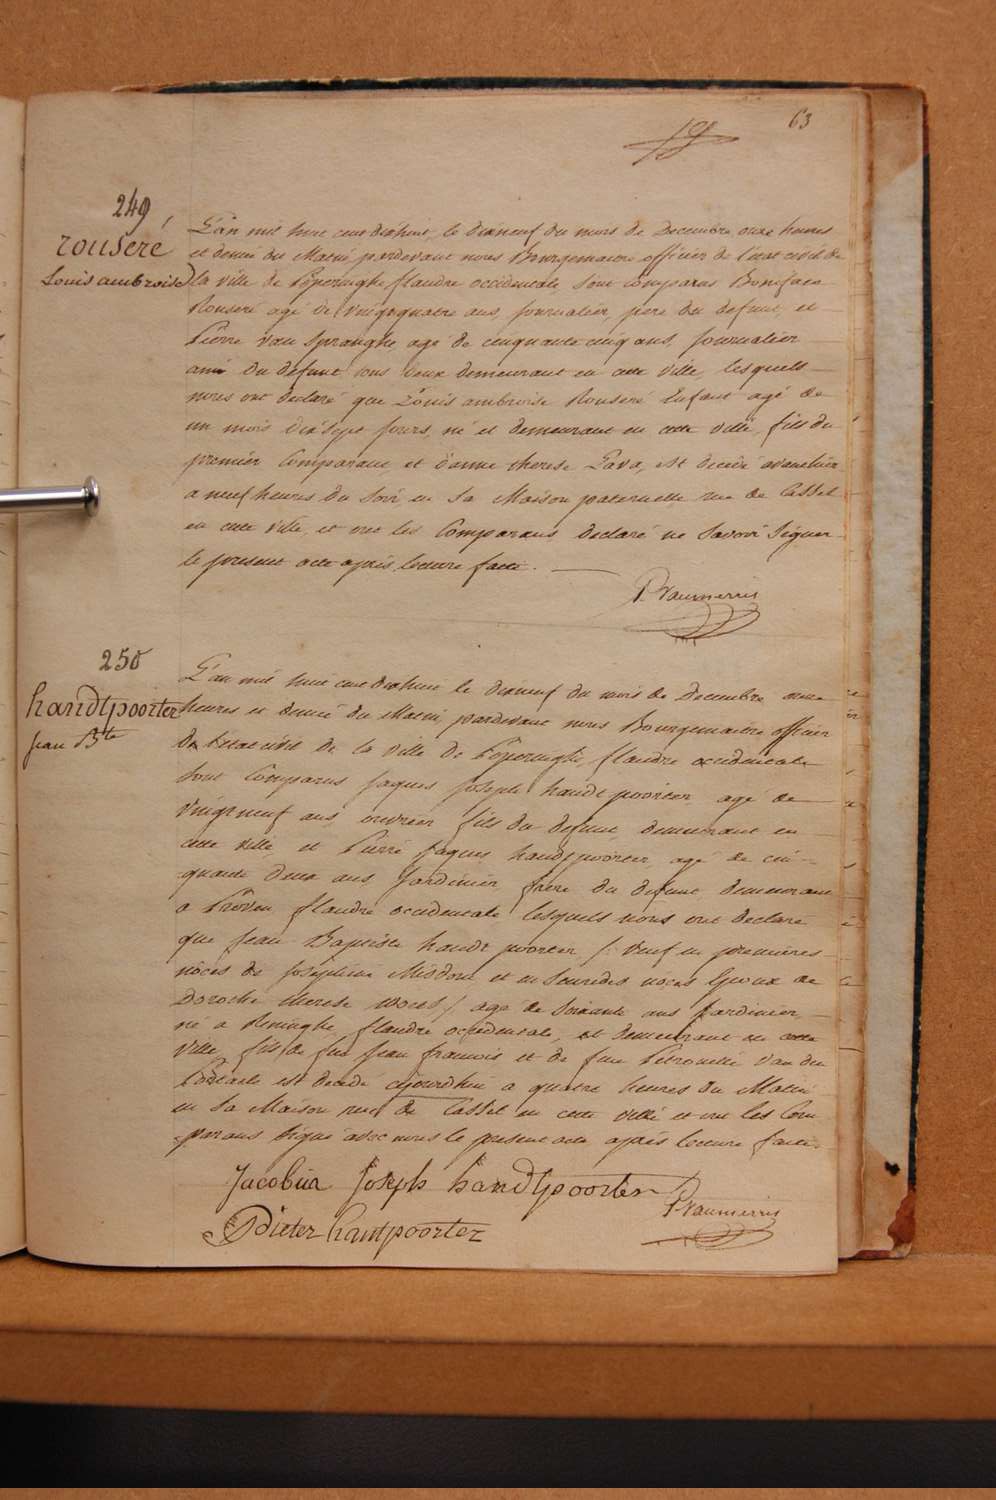 63
249
Rouseré
Louis ambroise
L'an mil huit cent dixhuit, le dixneuf du mois de Decembre, onze heures
et demie du Matin pardevant nous Bourgemaitre officier de l'état civil de
la ville de Poperinghe flandre occidentale, sont comparus Boniface
Rouseré agé de vingtquatre ans, journalier, pere du defunt, et
Pierre van Spranghe agé de cinquante cinq ans, journalier
ami du défunt tous deux demeurant en cette ville, lesquels
nous ont declaré que Louis ambroise Rouseré Enfant agé de
un mois dix sept jours, né et demeurant en cette ville, fils du
premier Comparant, et d'anne therese Lava, est decedé avanthier
a neuf heures du soir, en sa Maison paternelle rue de Cassel
en cette ville, et ont les Comparans declaré ne savoir signer
le present acte après lecture faite.
P. Vaumerris
250
handtpoorter
jean Bte
L'an mil huit cent dixhuit le dixneuf du mois de Decembre onze
heures et demie du Matin, pardevant nous Bourgemaitre officier
de l'etat civil de la ville de Poperinghe, flandre occidentale
sont Comparus jaques joseph handtpoorter, agé de
vingtneuf ans, ouvrier fils du defunt demeurant en
cette ville et Pierre jaques handtpoorter agé de cin-
quante deux ans jardinier, frere du defunt demeurant
a Proven flandre occidentale lesquels nous ont declaré
que jean Baptiste handtpoorter /: veuf en premieres
nôces de josephine Misdom et en secondes nôces Epoux de
Dorothé therese / agé de soixante ans jardinier,
né a Reninghe, flandre occidentale, et demeurant en cette
ville, fils de feu jean francois et de feue Petronelle van den
est decedé cejourdhui a quatre heures du Matin
en sa Maison rue de Cassel en cette ville et ont les Com
parans signé avec nous le present acte après lecture faite.
Jacobus Joseph handtpoorter
P. Vaumerris
Pieter hantpoorter